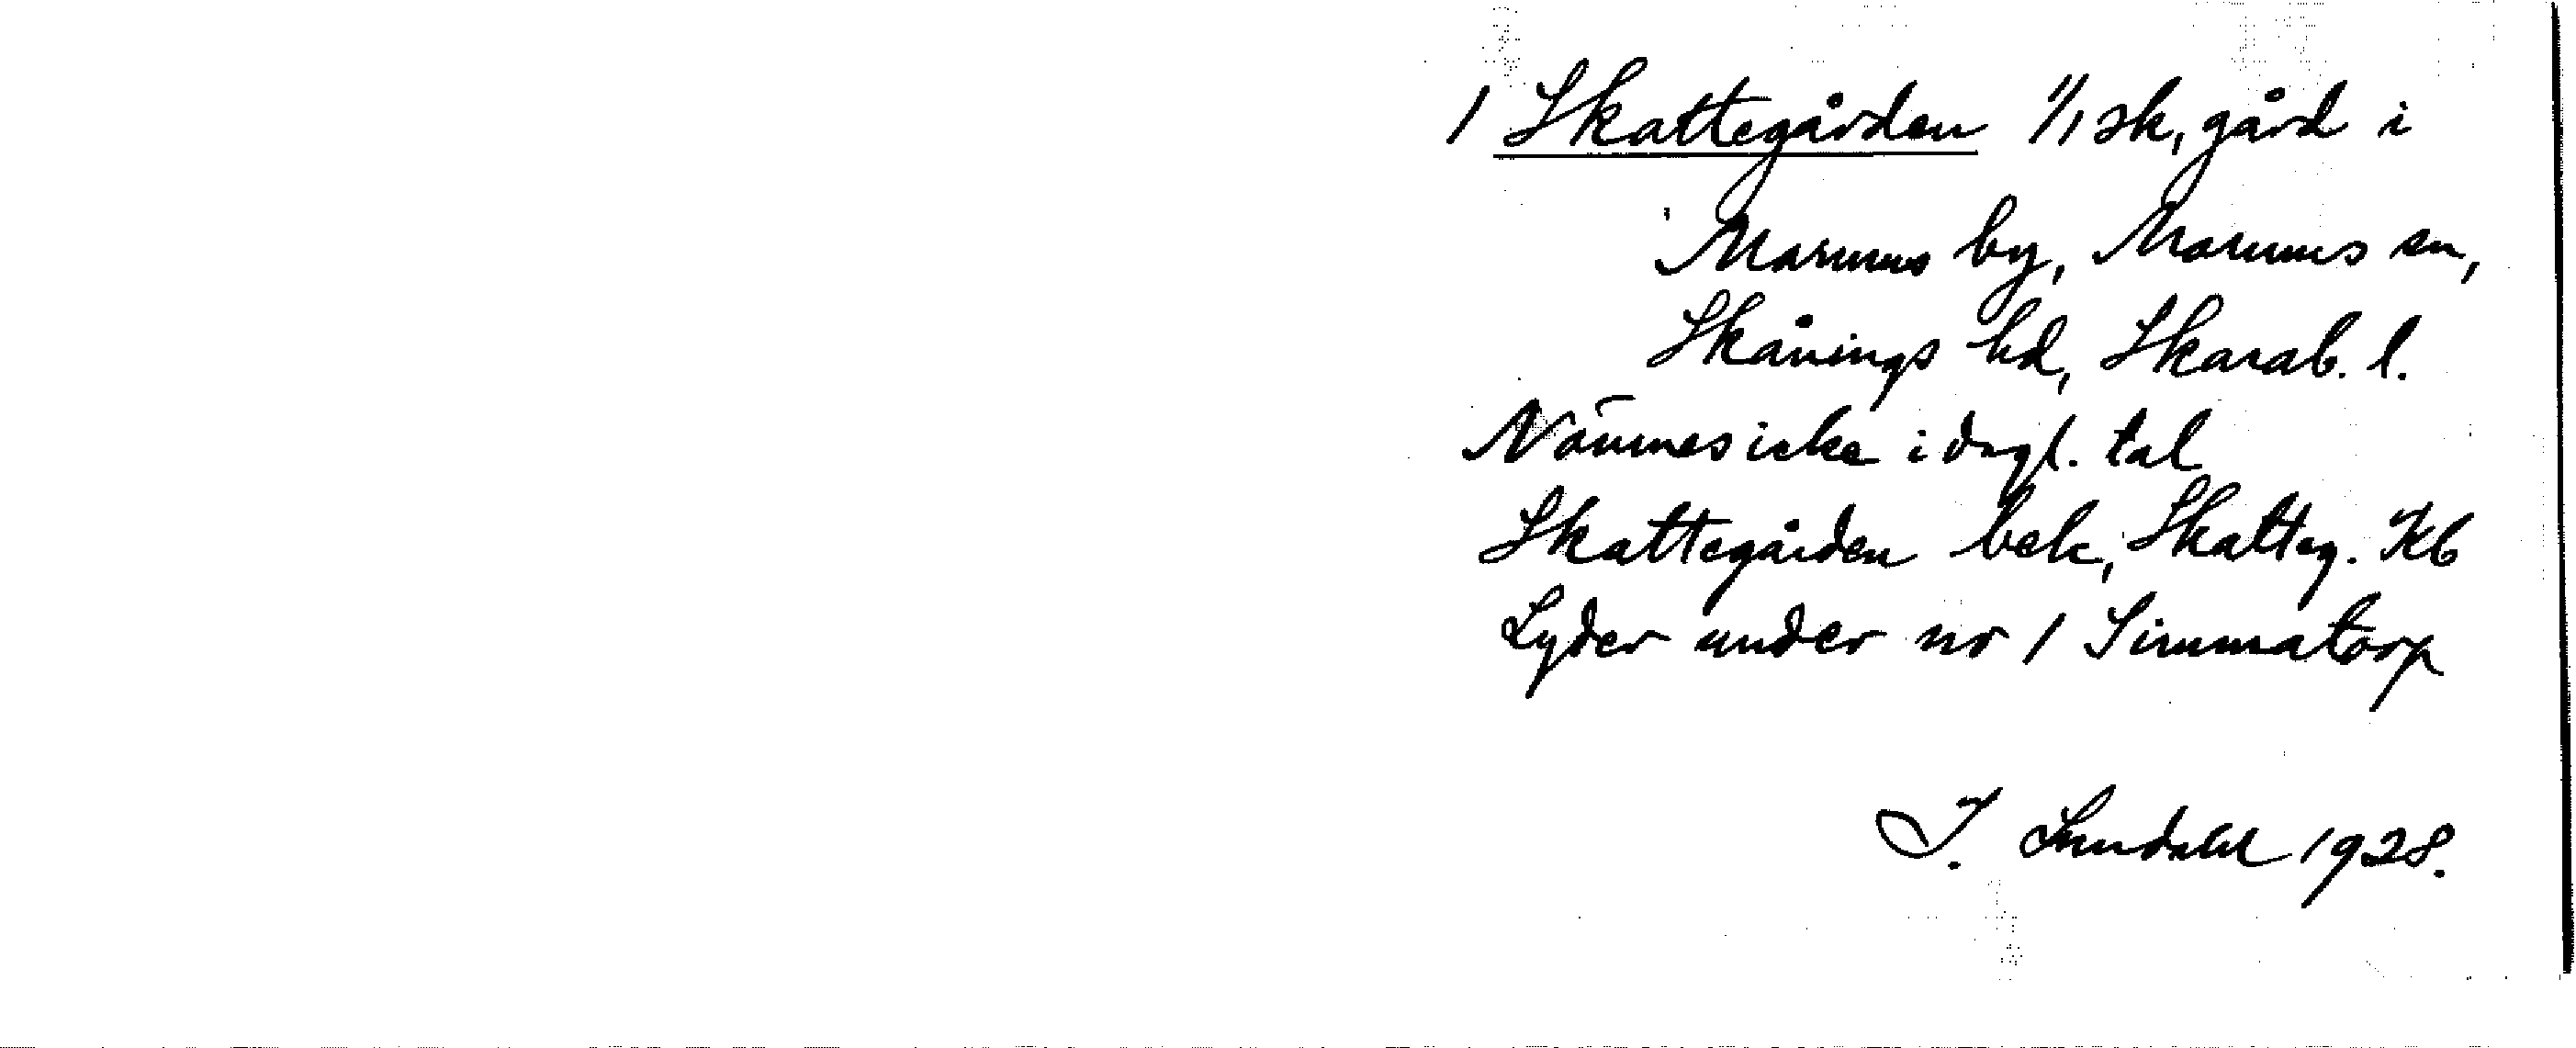 1 Skattegården 1/1 sk, gård i
Marums by, Marums sn,
Skånings hd, Skarab. l.
Nämnes icke i dagl. tal
Skattegården bek, Skatteg. Kb
Lyder under nr 1 Simmatorp
I. Lundahl 1928.